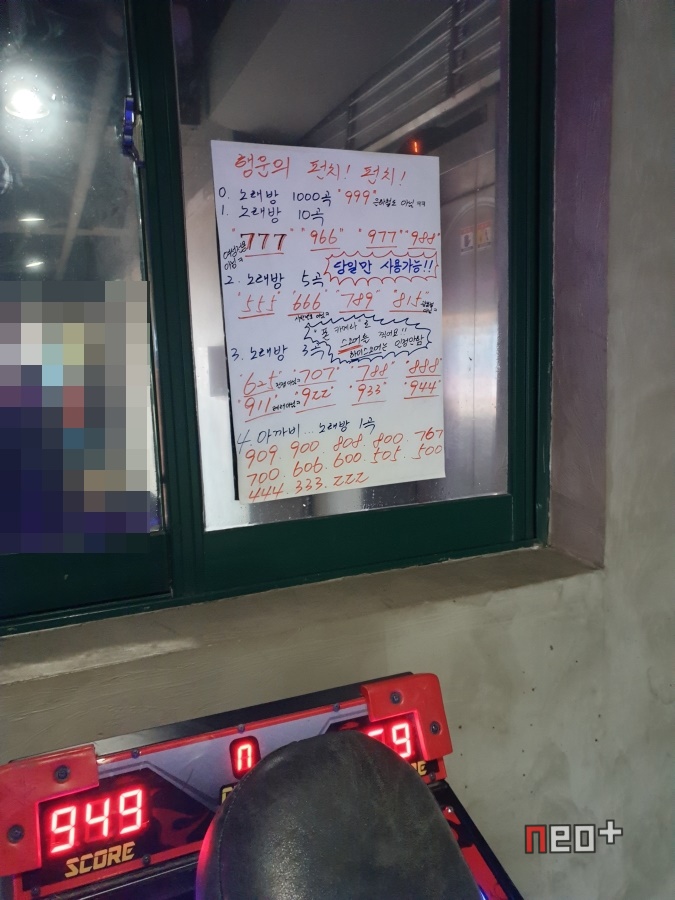 행운의 펀치! 펀치!
0. 노래방 1000곡 "999"
1. 노래방 10곡
"777" "966" "977" "988"
당일만 사용가능!!
2. 노래방 5곡
"555" "666" "789" "815"
"폰 카메라"로
스코어를 찍어요"
하이스코어는 인정안함
3. 노래방 3곡
"625" "707" "788" "888"
"911" "922" "933" "944"
4. 아까비... 노래방 1곡
909. 900. 808. 800. 767
700. 606. 600. 505. 500
444. 333. 222
949
59
SCORE
neo+